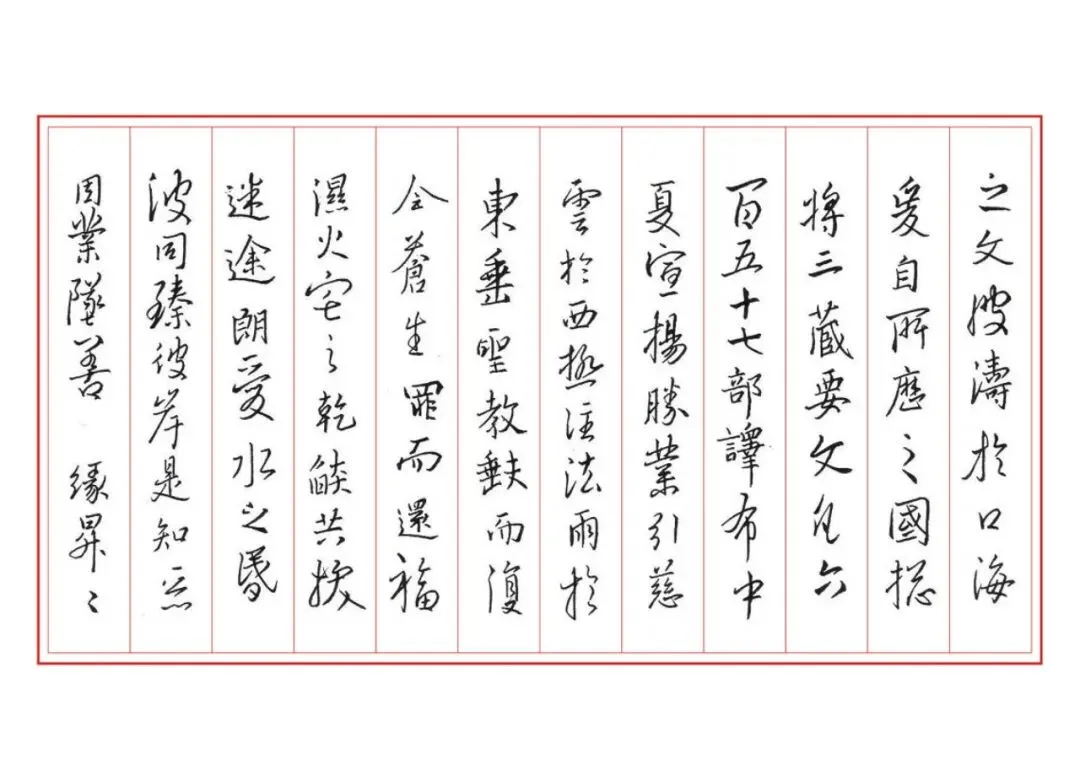 之文波濤於口海
爰自所歷之國捴
將三藏要文凡六
百五十七部譯布中
夏宣揚勝業引慈
雲於西極注法雨於
東垂聖教缺而復
全蒼生罪而還福
濕火宅之乾燄共拔
迷途朗愛水之昏
波同臻彼岸是知惡
因業墜善 緣昇〻